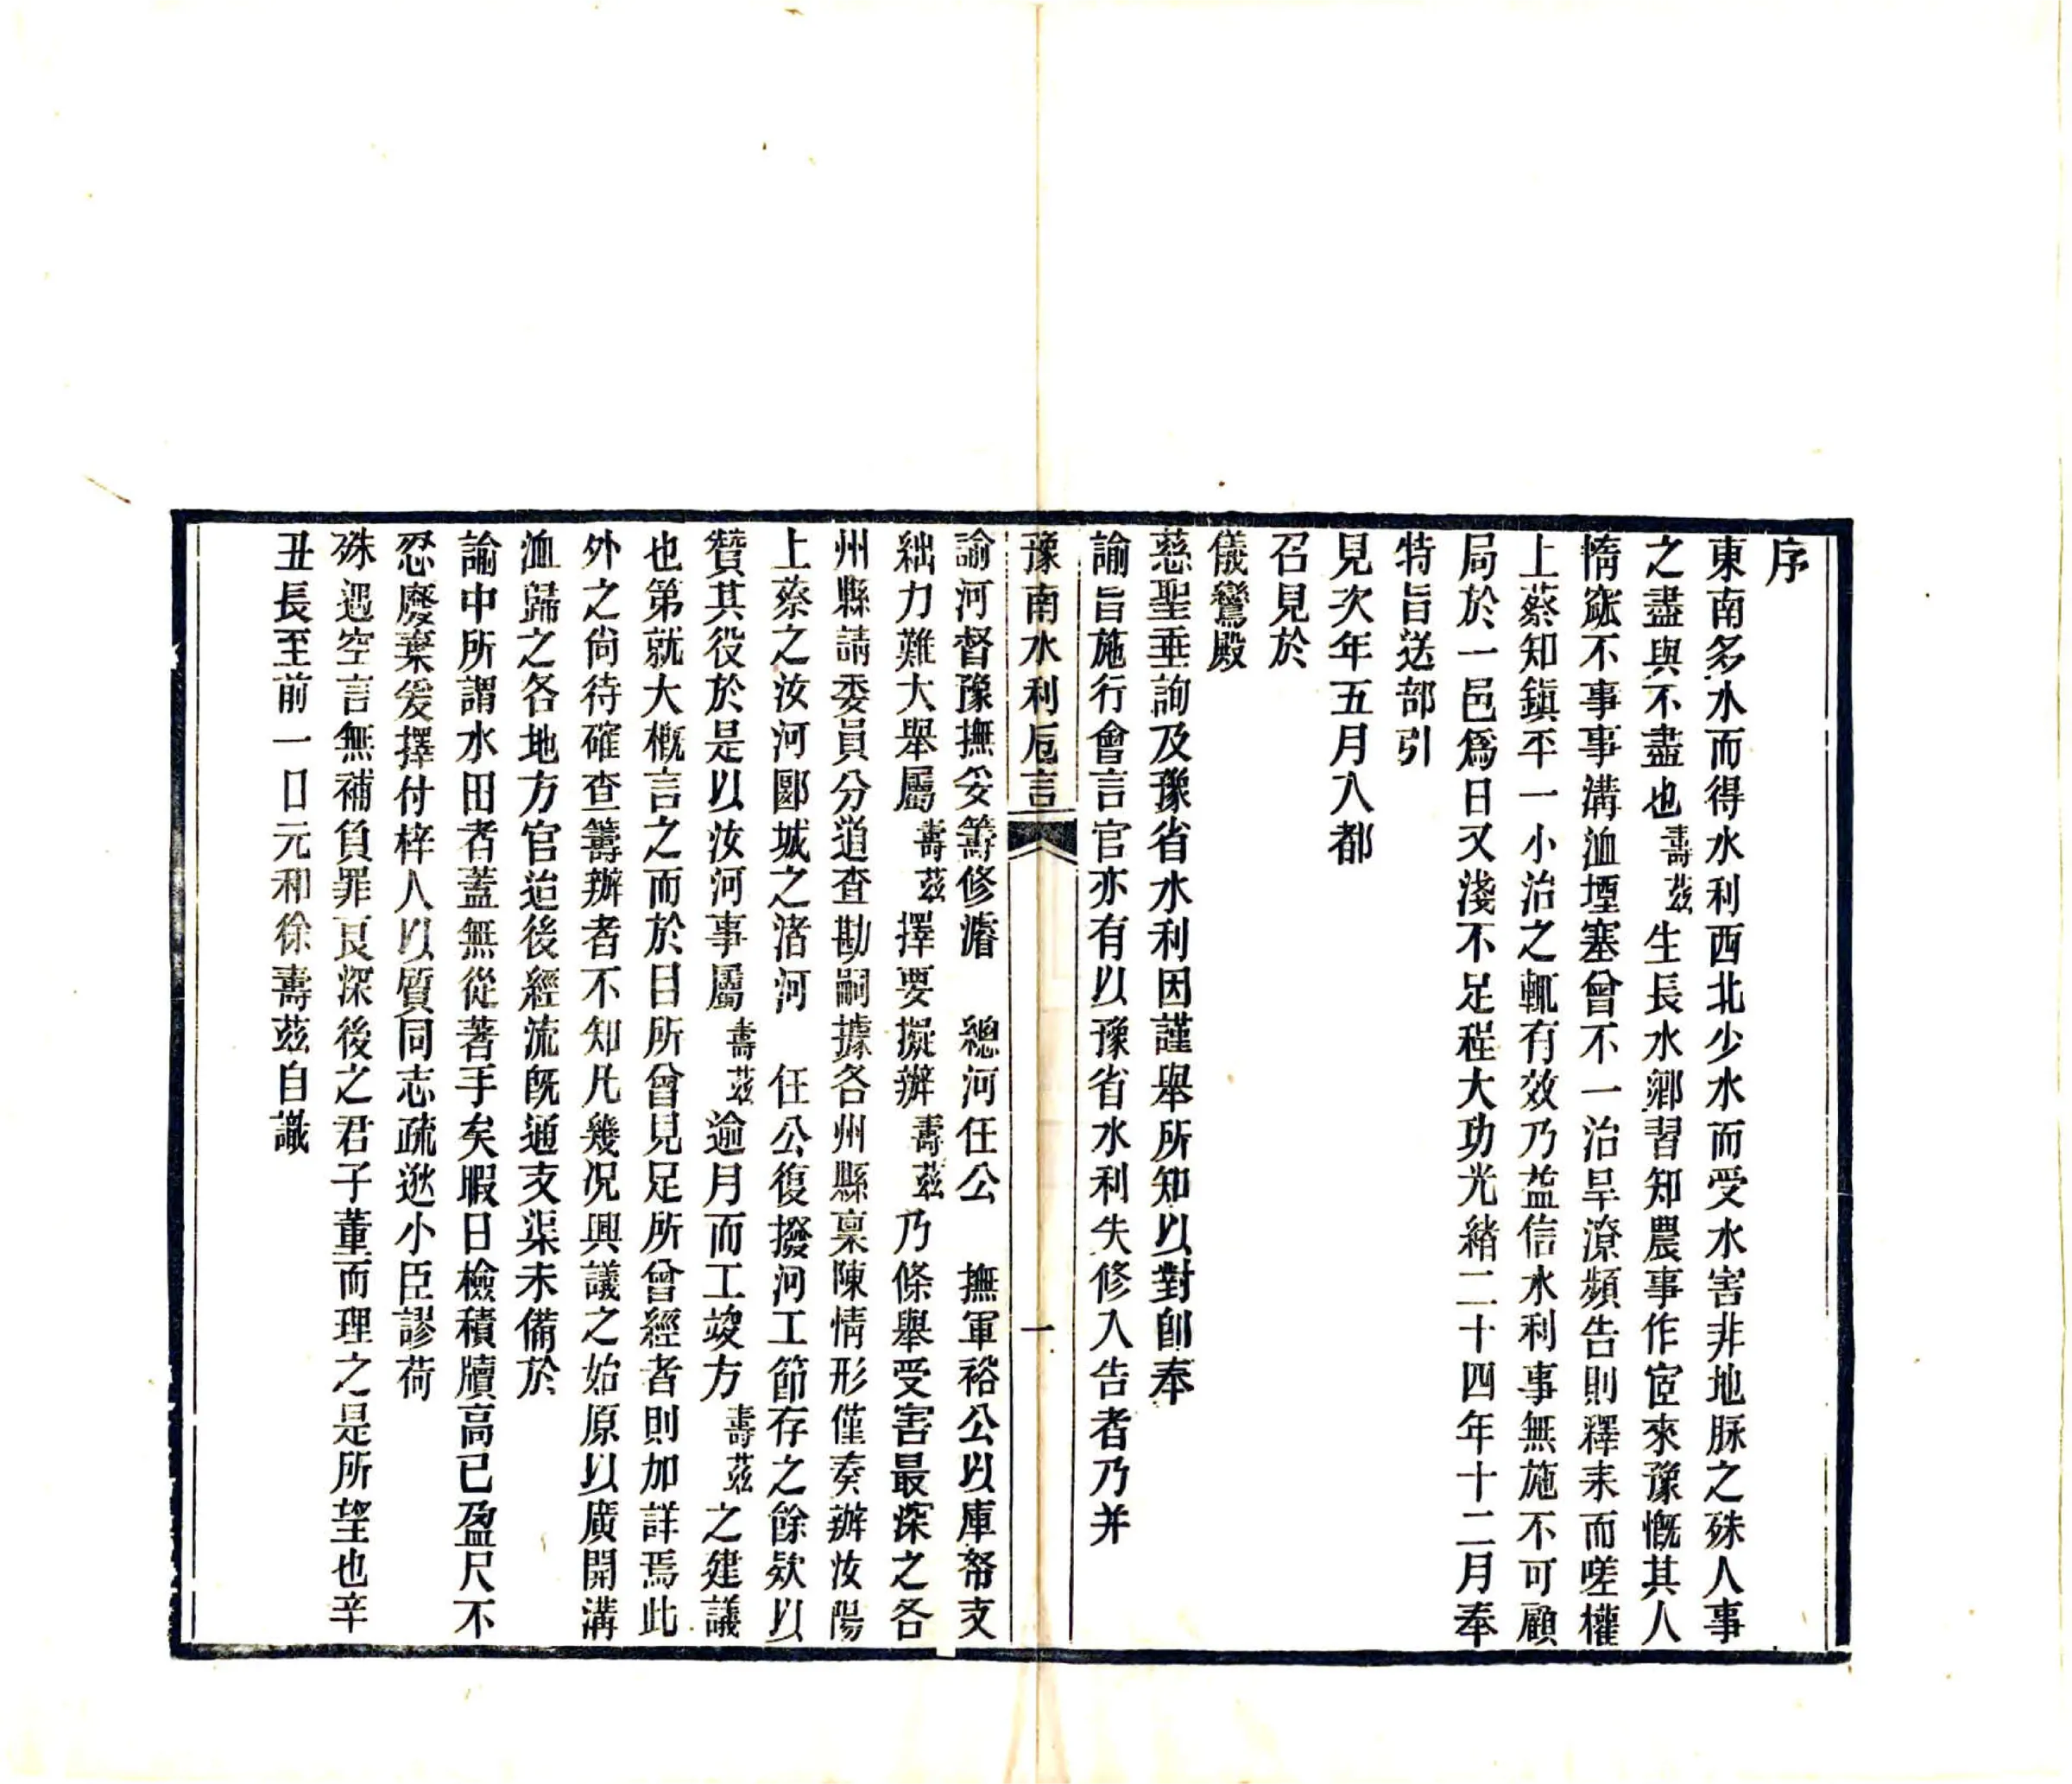 序
東南多水而得水利西北少水而受水害非地脉之殊人事
之盡與不盡也壽茲生長水鄉習知農事作宦來豫慨其人
惰窳不事事溝洫堙塞曾不一治旱潦頻告則釋耒而嗟權
上蔡知鎮平一小治之輒有效乃益信水利事無施不可顧
局於一邑爲日又淺不足程大功光緒二十四年十二月奉
特旨送部引
見次年五月入都
召見於
儀鸞殿
慈聖垂詢及豫省水利因謹舉所知以對卽奉
諭旨施行會言官亦有以豫省水利失修入告者乃并
豫南水利卮言 一
諭河督豫撫妥籌修濬 總河任公 撫軍裕公以庫帑支
絀力難大舉屬壽茲擇要擬辦壽茲乃條舉受害最深之各
州縣請委員分道查勘嗣據各州縣稟陳情形僅奏辦汝陽
上蔡之汝河郾城之渚河 任公復撥河工節存之餘欵以
贊其役於是以汝河事屬壽茲逾月而工竣方壽茲之建議
也第就大概言之而於目所曾見足所曾經者則加詳焉此
外之尙待確查籌辦者不知凡幾况興議之始原以廣開溝
洫歸之各地方官迨後經流旣通支渠未備於
諭中所謂水田者蓋無從著手矣暇日檢積牘高已盈尺不
忍廢棄爰擇付梓人以質同志疏逖小臣謬荷
殊遇空言無補負罪良深後之君子董而理之是所望也辛
丑長至前一日元和徐壽茲自識